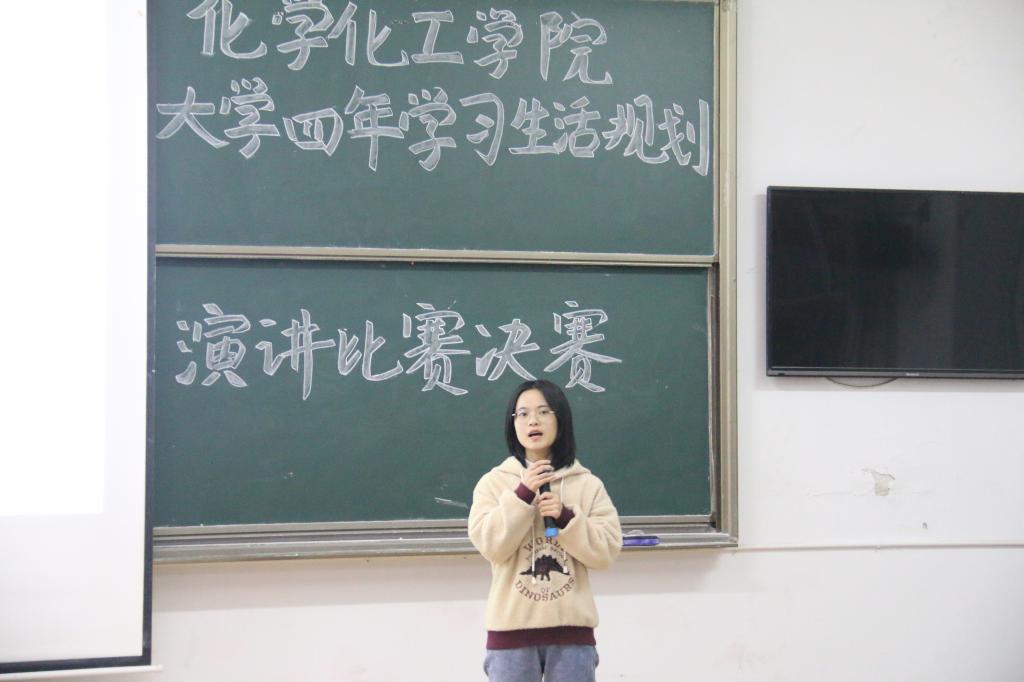 化学化工学院
大学四年学习生活规划
演讲比赛决赛
WORLD
OF
DINOSAURS